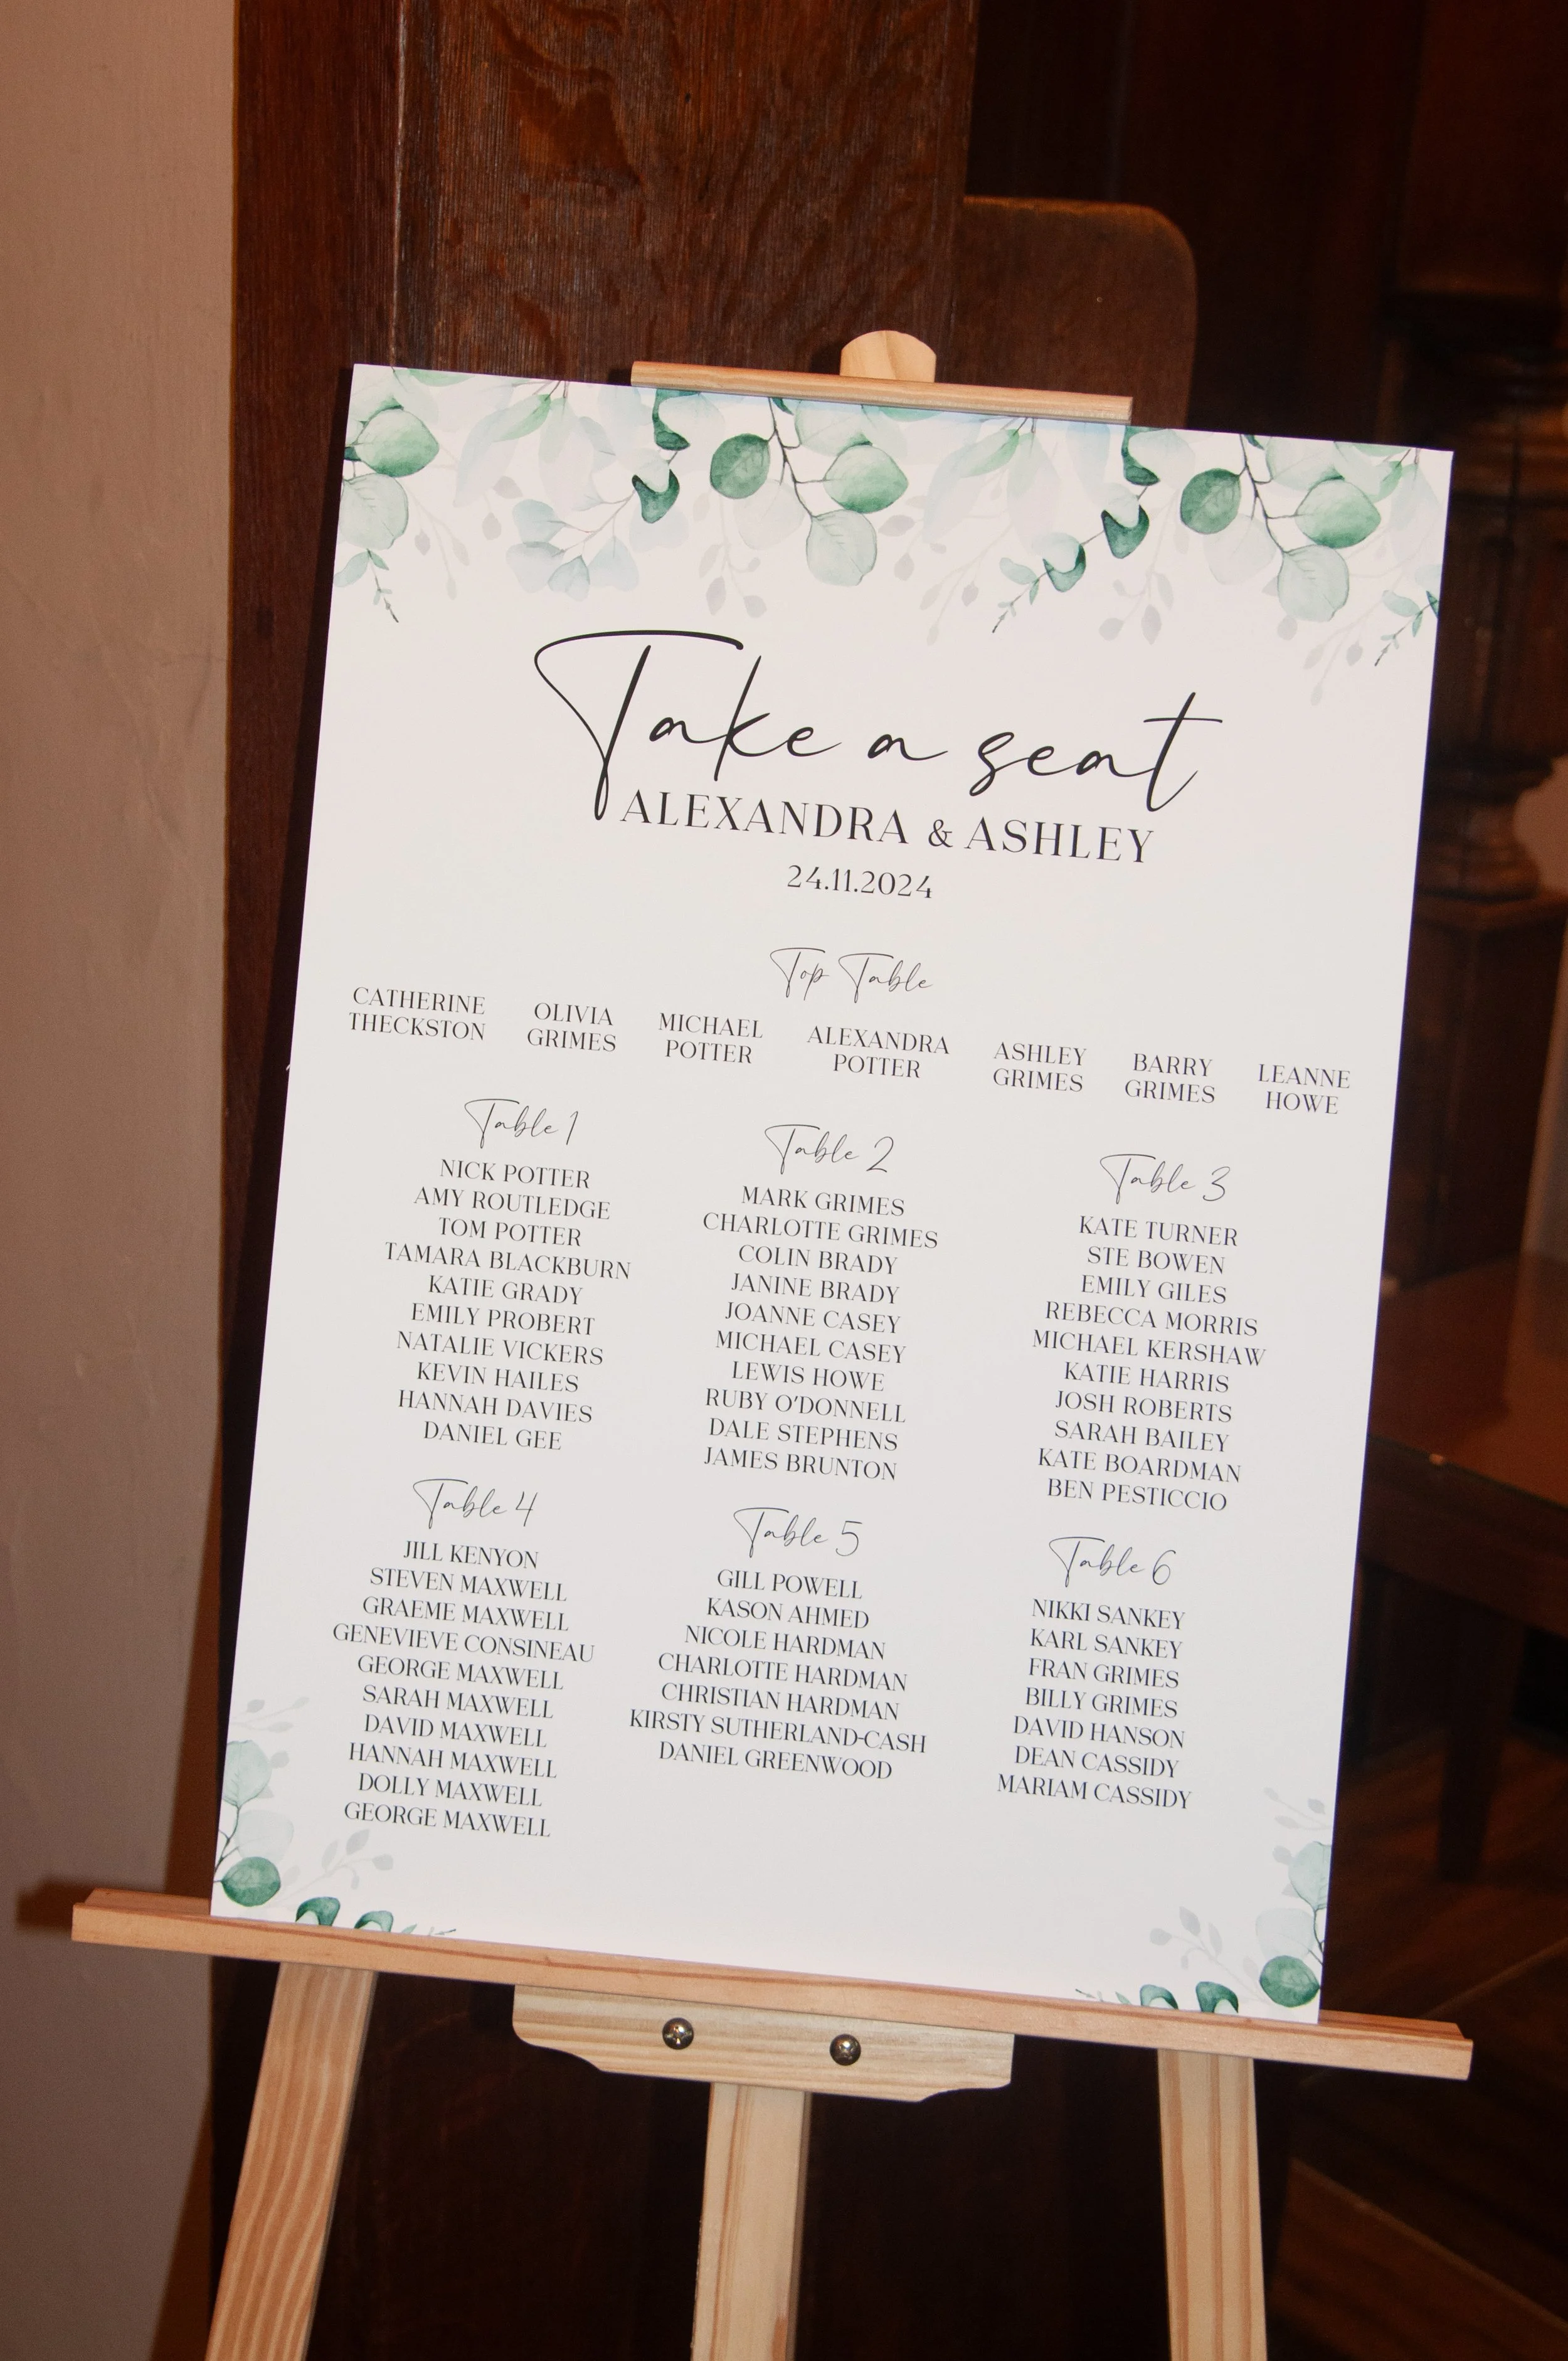 Take a seat
ALEXANDRA & ASHLEY
24.11.2024
Top Table
CATHERINE
THECKSTON
OLIVIA
GRIMES
MICHAEL
POTTER
ALEXANDRA
POTTER
ASHLEY
GRIMES
BARRY
GRIMES
LEANNE
HOWE
Table 1
NICK POTTER
AMY ROUTLEDGE
TOM POTTER
TAMARA BLACKBURN
KATIE GRADY
EMILY PROBERT
NATALIE VICKERS
KEVIN HAILES
HANNAH DAVIES
DANIEL GEE
Table 2
MARK GRIMES
CHARLOTTE GRIMES
COLIN BRADY
JANINE BRADY
JOANNE CASEY
MICHAEL CASEY
LEWIS HOWE
RUBY O'DONNELL
DALE STEPHENS
JAMES BRUNTON
Table 3
KATE TURNER
STE BOWEN
EMILY GILES
REBECCA MORRIS
MICHAEL KERSHAW
KATIE HARRIS
JOSH ROBERTS
SARAH BAILEY
KATE BOARDMAN
BEN PESTICCIO
Table 4
JILL KENYON
STEVEN MAXWELL
GRAEME MAXWELL
GENEVIEVE CONSINEAU
GEORGE MAXWELL
SARAH MAXWELL
DAVID MAXWELL
HANNAH MAXWELL
DOLLY MAXWELL
GEORGE MAXWELL
Table 5
GILL POWELL
KASON AHMED
NICOLE HARDMAN
CHARLOTTE HARDMAN
CHRISTIAN HARDMAN
KIRSTY SUTHERLAND-CASH
DANIEL GREENWOOD
Table 6
NIKKI SANKEY
KARL SANKEY
FRAN GRIMES
BILLY GRIMES
DAVID HANSON
DEAN CASSIDY
MARIAM CASSIDY